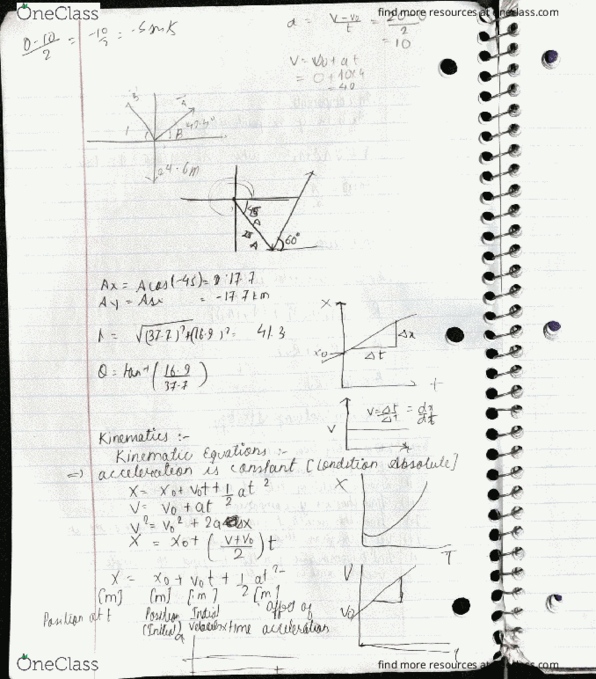 OneClass
find more resources at oneclass.com
0-10/2 = -10/2 = -5 m/s
a = v-v0/t = 20-0/2
= 10
V = V0 + at
= 0+10×4
= 40
B
A
β
24.6m
A
60°
Ax = A cos(-45) = 17.7
Ay = = -17.7 km
= √(37.7)²+(16.9)² = 41.3
θ = tan⁻¹(16.9/37.7)
X
x0
Δx
Δt
t
V
v = Δx/Δt = dx/dt
Kinematics :-
Kinematic Equations :-
=> acceleration is constant [Condition Absolute]
X = x0 + v0t + 1/2 at²
V = v0 + at
V² = v0² + 2a Δx
X = x0 + (v+v0/2) t
X
T
X = x0 + v0t + 1/2 at²
[m] [m] [m] [m]
Position at t Position Initial Effect of
(Initial) velocity×time acceleration
V
V0
OneClass
find more resources at oneclass.com